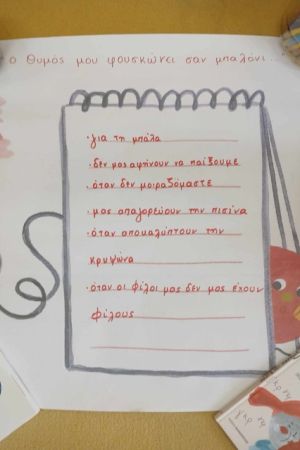 ο θυμός μου φουσκώνει σαν μπαλόνι...
·για τη μπάλα
·δεν μας αφήνουν να παίξουμε
·όταν δεν μοιραζόμαστε
·μας απαγορεύουν την πισίνα
·όταν αποκαλύπτουν την
κρυψώνα
·όταν οι φίλοι μας δεν μας έχουν
φίλους
γκρ
γκρ